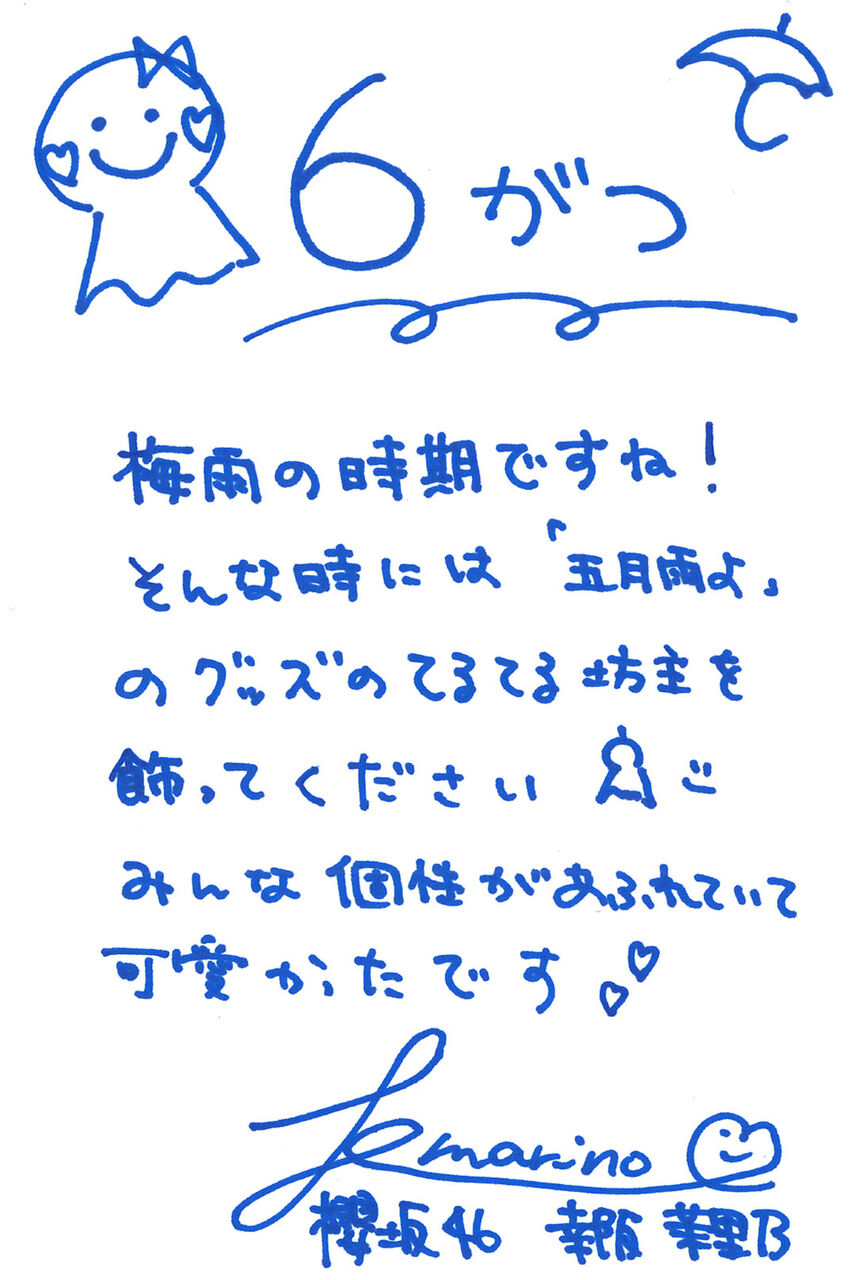 6がつ
梅雨の時期ですね！
そんな時には「五月雨よ」
のグッズのてるてる坊主を
飾ってください
みんな個性があふれていて
可愛かったです
marino
櫻坂46 幸阪 茉里乃